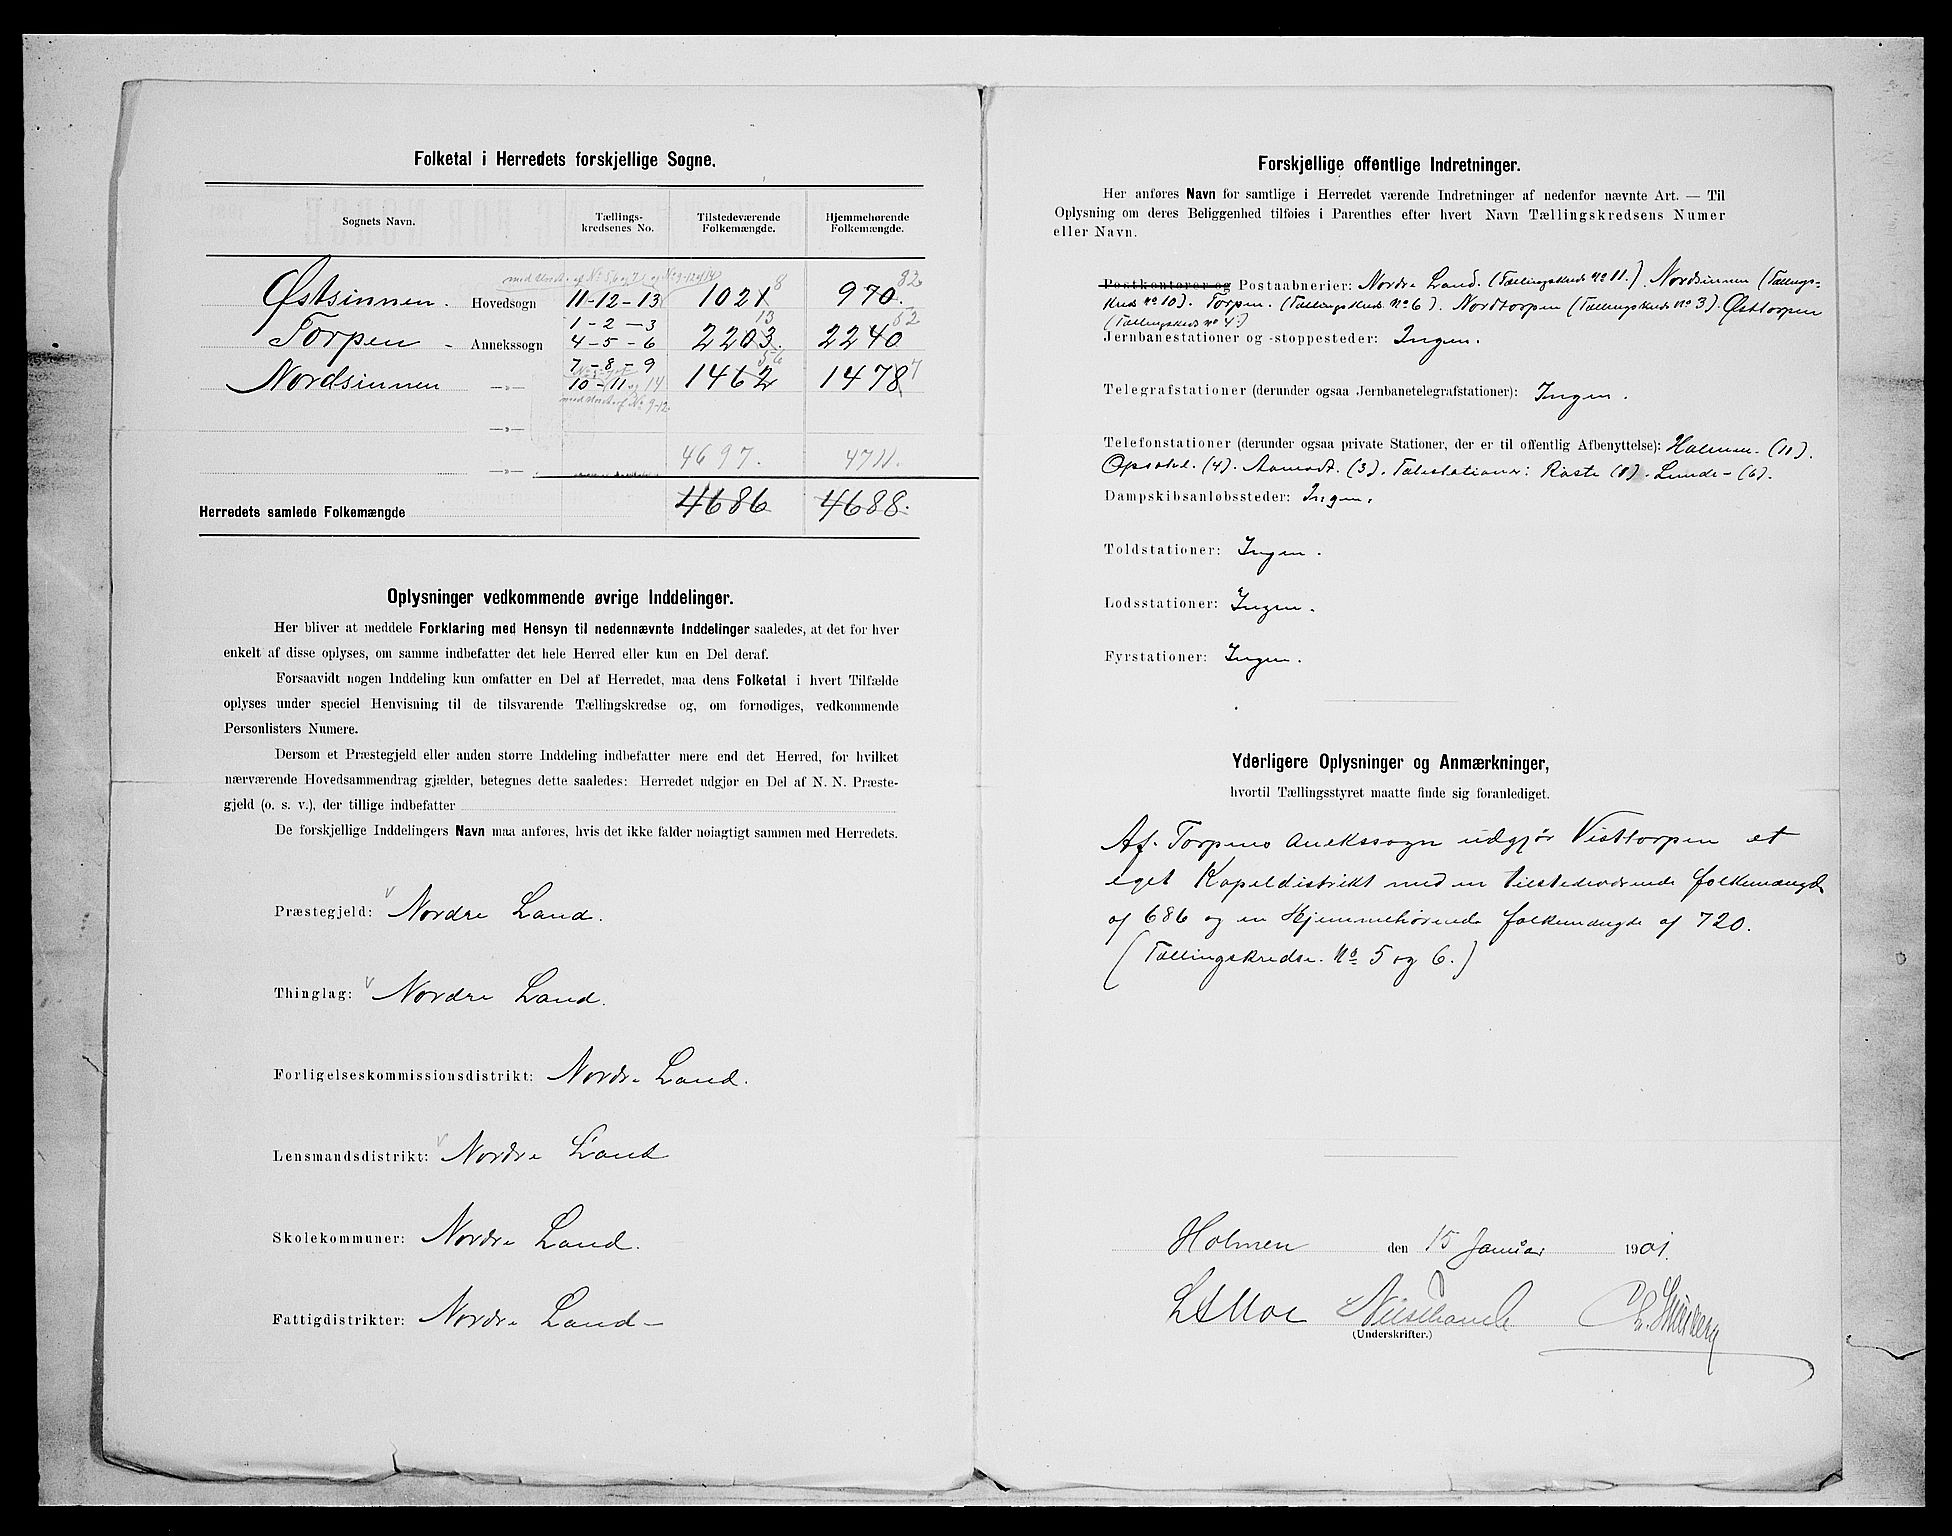 Folketal i Herredets forskjellige Sogne.
Sognets Navn. Tællings-kredsenes No. Tilstedeværende Folkemængde. Hjemmehørende Folkemængde.
Østsinnen. Hovedsogn 11-12-13 1021 8 970. 82
1-2-3 13 52
Torpen - Annekssogn 4-5-6 2203. 2240
7-8-9 56
Nordsinnen —„— 10-11 og 14 1462 1478 7
—„—
4697. 4711.
—„—
Herredets samlede Folkemængde 4686 4688.
Oplysninger vedkommende øvrige Inddelinger.
Her bliver at meddele Forklaring med Hensyn til nedennævnte Inddelinger saaledes, at det for hver
enkelt af disse oplyses, om samme indbefatter det hele Herred eller kun en Del deraf.
Forsaavidt nogen Inddeling kun omfatter en Del af Herredet, maa dens Folketal i hvert Tilfælde
oplyses under speciel Henvisning til de tilsvarende Tællingskredse og, om fornødiges, vedkommende
Personlisters Numere.
Dersom et Præstegjeld eller anden større Inddeling indbefatter mere end det Herred, for hvilket
nærværende Hovedsammendrag gjælder, betegnes dette saaledes: Herredet udgjør en Del af N. N. Præste-
gjeld (o. s. v.), der tillige indbefatter
De forskjellige Inddelingers Navn maa anføres, hvis det ikke falder nøiagtigt sammen med Herredets.
Præstegjeld: Nordre Land.
Thinglag: Nordre Land.
Forligelseskommissionsdistrikt: Nordre Land.
Lensmandsdistrikt: Nordre Land
Skolekommuner: Nordre Land.
Fattigdistrikter: Nordre Land-
Forskjellige offentlige Indretninger.
Her anføres Navn for samtlige i Herredet værende Indretninger af nedenfor nævnte Art. — Til
Oplysning om deres Beliggenhed tilføies i Parenthes efter hvert Navn Tællingskredsens Numer
eller Navn.
Postkontorer og Postaabnerier: Nordre Land. (Tællingskreds No 11.) Nordsinnen (Tællings-
kreds No 10). Torpen. (Tællingskreds No 6). Nordtorpen (Tællingskreds No 3). Østtorpen
(Tællingskreds No 4.)
Jernbanestationer og -stoppesteder: Ingen.
Telegrafstationer (derunder ogsaa Jernbanetelegrafstationer): Ingen.
Telefonstationer (derunder ogsaa private Stationer, der er til offentlig Afbenyttelse): Holmen. (11).
Opsahl. (4). Aamodt. (3). Talestationer: Roste (8). Lunde- (6).
Dampskibsanløbssteder: Ingen.
Toldstationer: Ingen.
Lodsstationer: Ingen.
Fyrstationer: Ingen.
Yderligere Oplysninger og Anmærkninger,
hvortil Tællingsstyret maatte finde sig foranlediget.
Af Torpens Anekssogn udgjør Vesttorpen et
eget Kapeldistrikt med en tilstedeværende folkemængde
af 686 og en Hjemmehørende folkemængde af 720.
(Tællingskredse. No 5 og 6.)
Holmen den 15 Januar 1901.
(Underskrifter.)